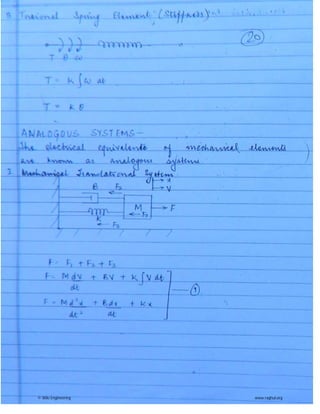 3. Torsional Spring Element (Stiffness)
20
T θ ω
T = K ∫ω dt
T = K θ
ANALOGOUS SYSTEMS—
The electrical equivalents of mechanical elements
are known as analogous systems
Mechanical Translational System
x
B F2 V
M F
F1
K
F3
F = F1 + F2 + F3
F = M dV/dt + BV + K ∫V dt
F = M d²x/dt² + B dx/dt + Kx
1
www.raghul.org